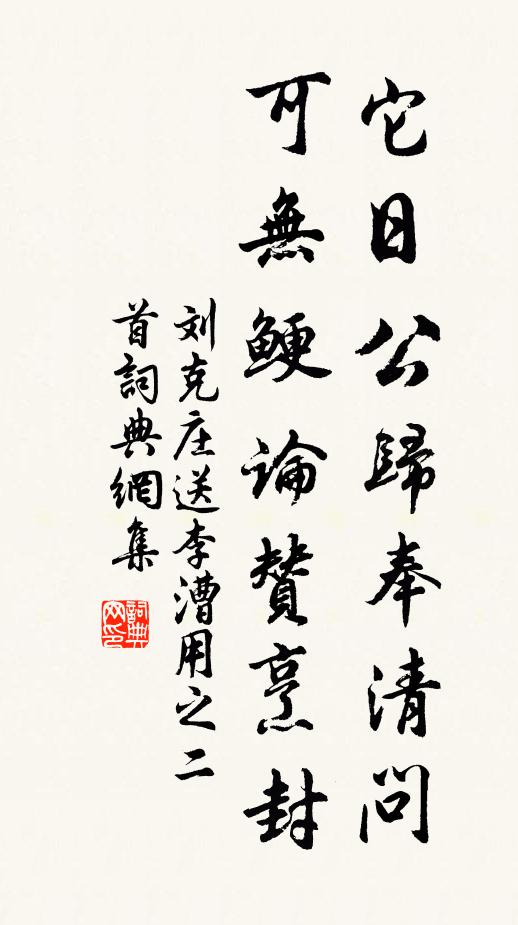 它日公歸奉清問
可無鯁論贊烹封
刘克庄送李漕用之二
首詞典網集
詞典网印